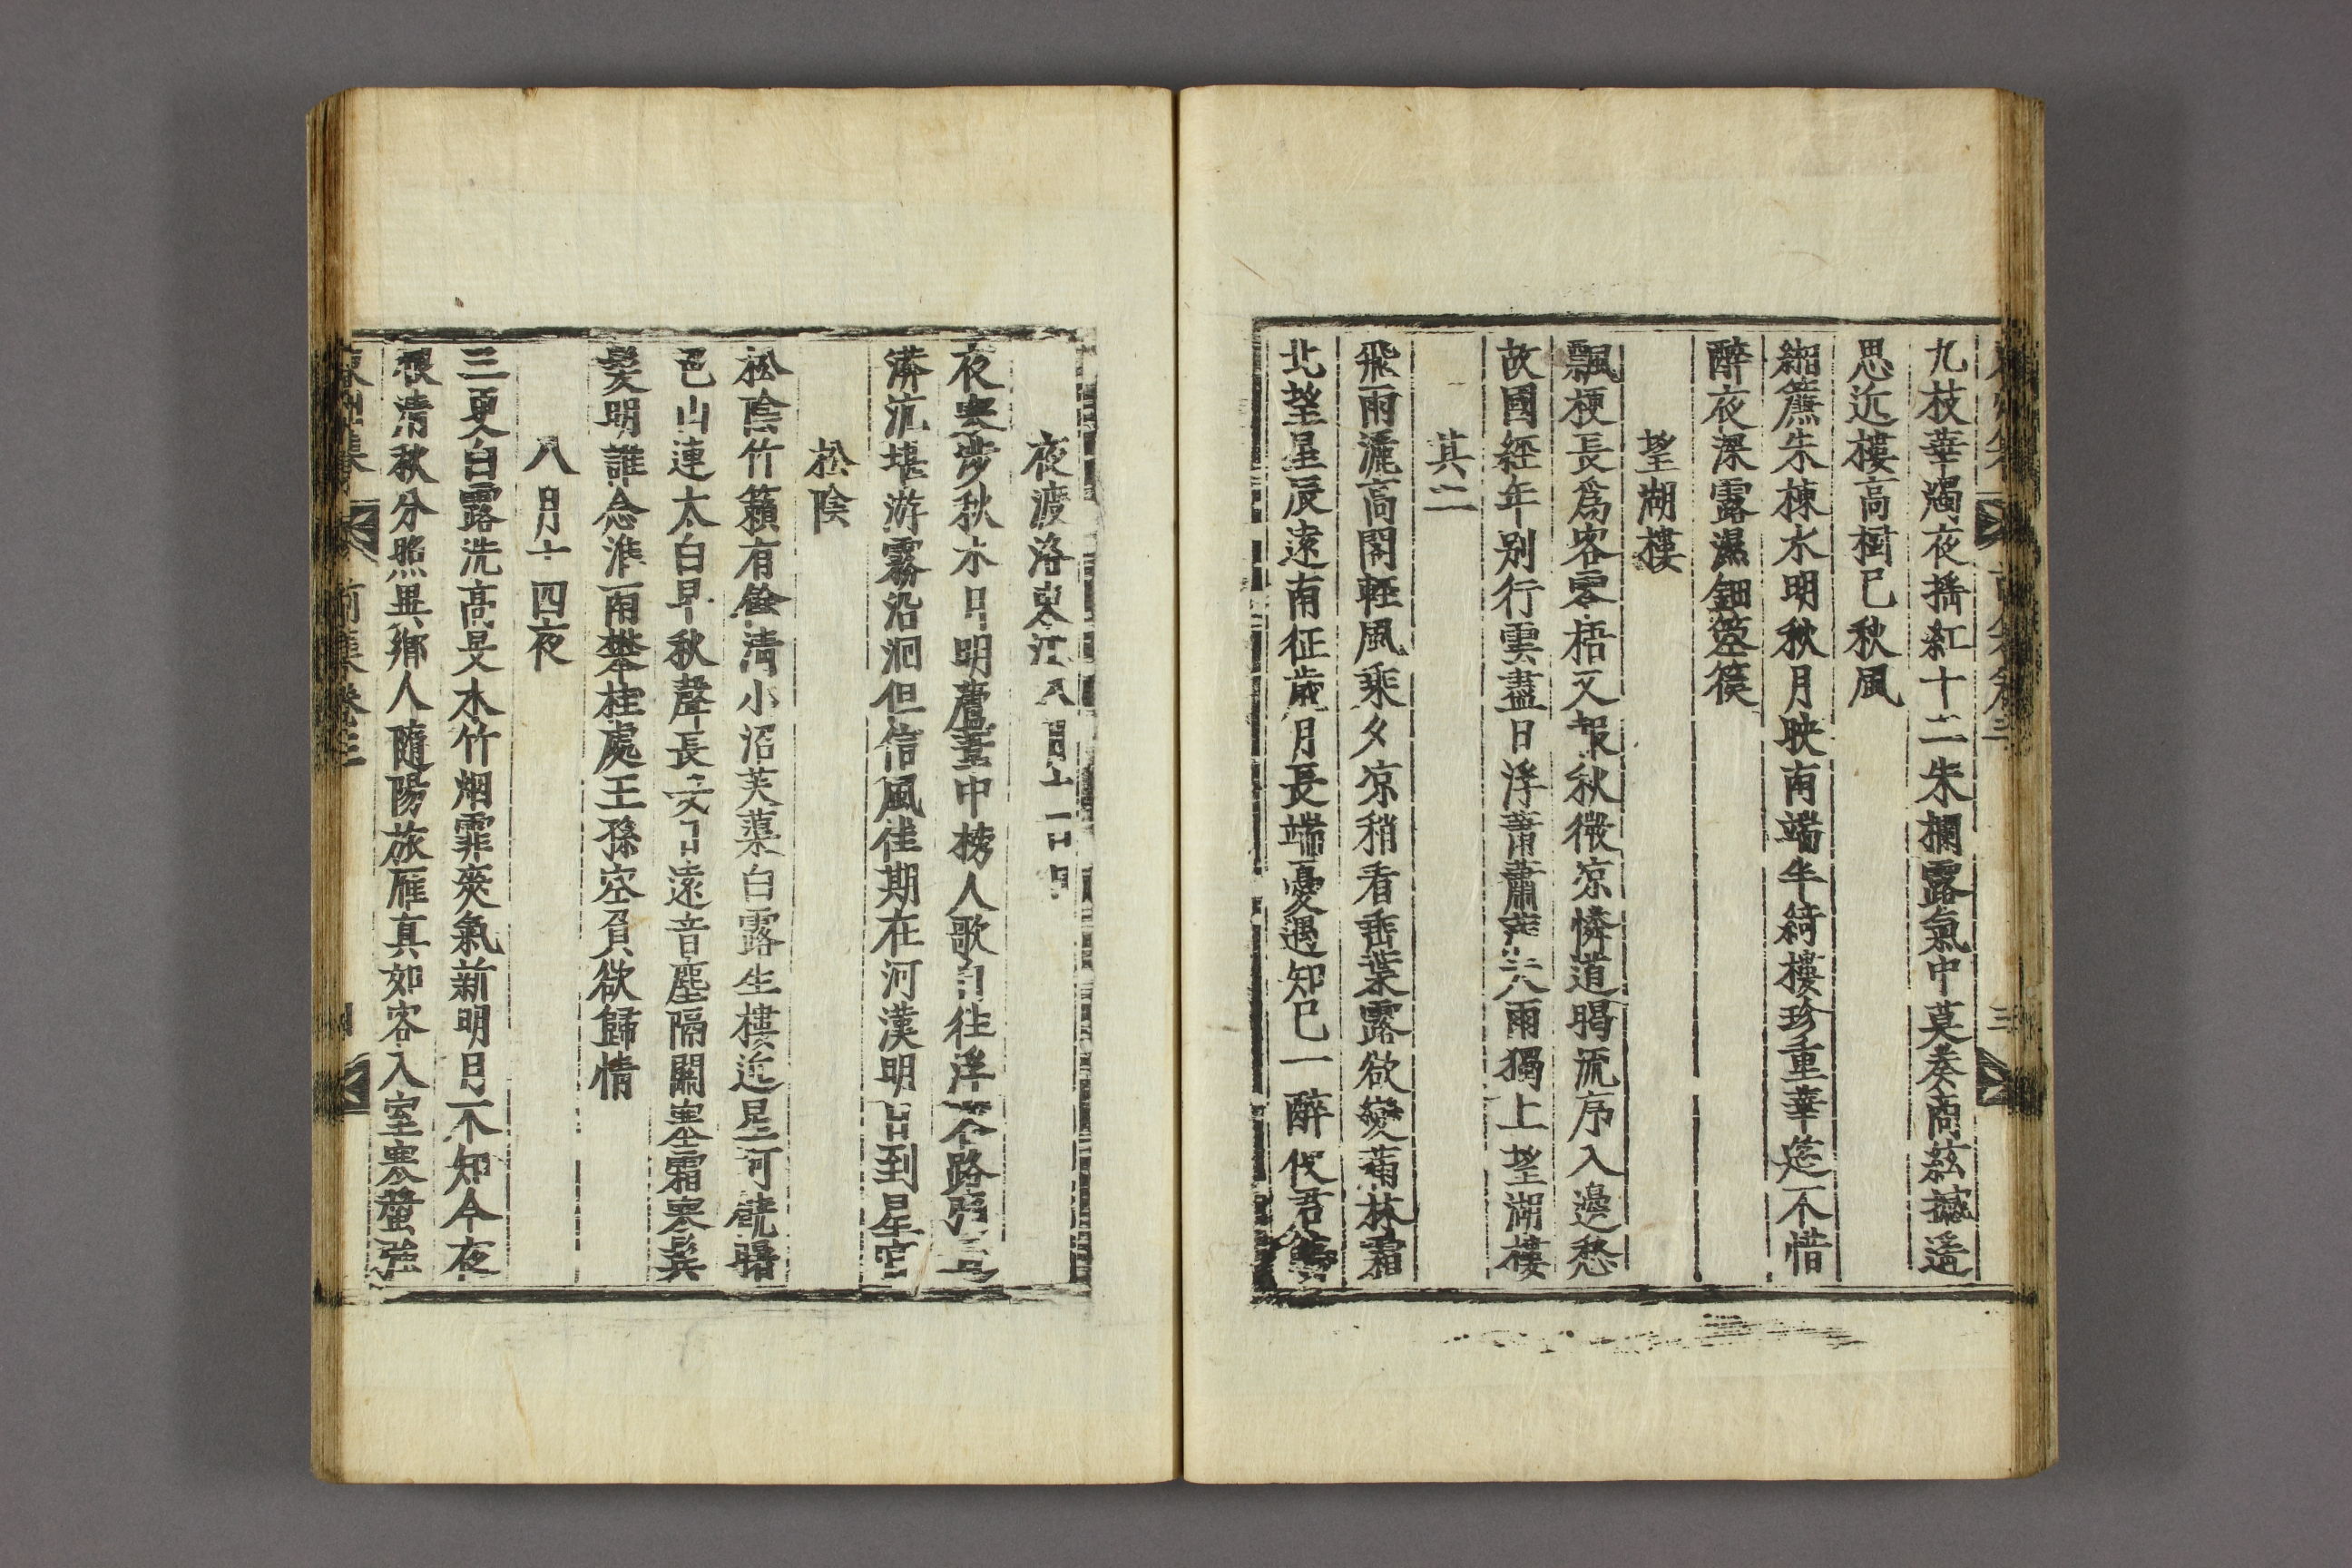 九枝華燭夜搖紅十二朱欄露氣中莫奏商絃撼遙
思近樓高樹已秋風
緗簾朱棟水明秋月映南端牛綺樓珍重華筵不惜
醉夜深露濕鈿箜篌
望湖樓
飄梗長爲客零梧又報秋微凉憐道暍流序入邊愁
故國經年別行雲盡日浮蕭蕭 雨獨上望湖樓
其二
飛雨灑高閣輕風乘夕凉稍看垂葉露欲變蒲林霜
北望星辰遠南征歲月長端憂遇知己一醉伐君
三
夜渡洛東江八月十一日
夜寒涉秋水月明蘆葦中榜人歌自往浮 路
漭沆堪游霧沿洄但信風佳期在河漢明 到星宮
松陰
松陰竹籟有餘淸小沼芙蕖白露生樓近星河 曙
色山連太白早秋聲長 遠音塵隔關塞霜寒鬂
髮明誰念淮南攀桂處王孫空負欲歸情
八月十四夜
三更白露洗高旻水竹烟霏爽氣新明月不知今夜
恨淸秋分照異鄉人隨陽旅雁真如客入室寒螿強
東州集 前集卷三